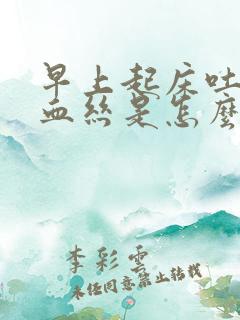 早上起床吐
血丝是怎麽
李彩雲
未經同意禁止轉載